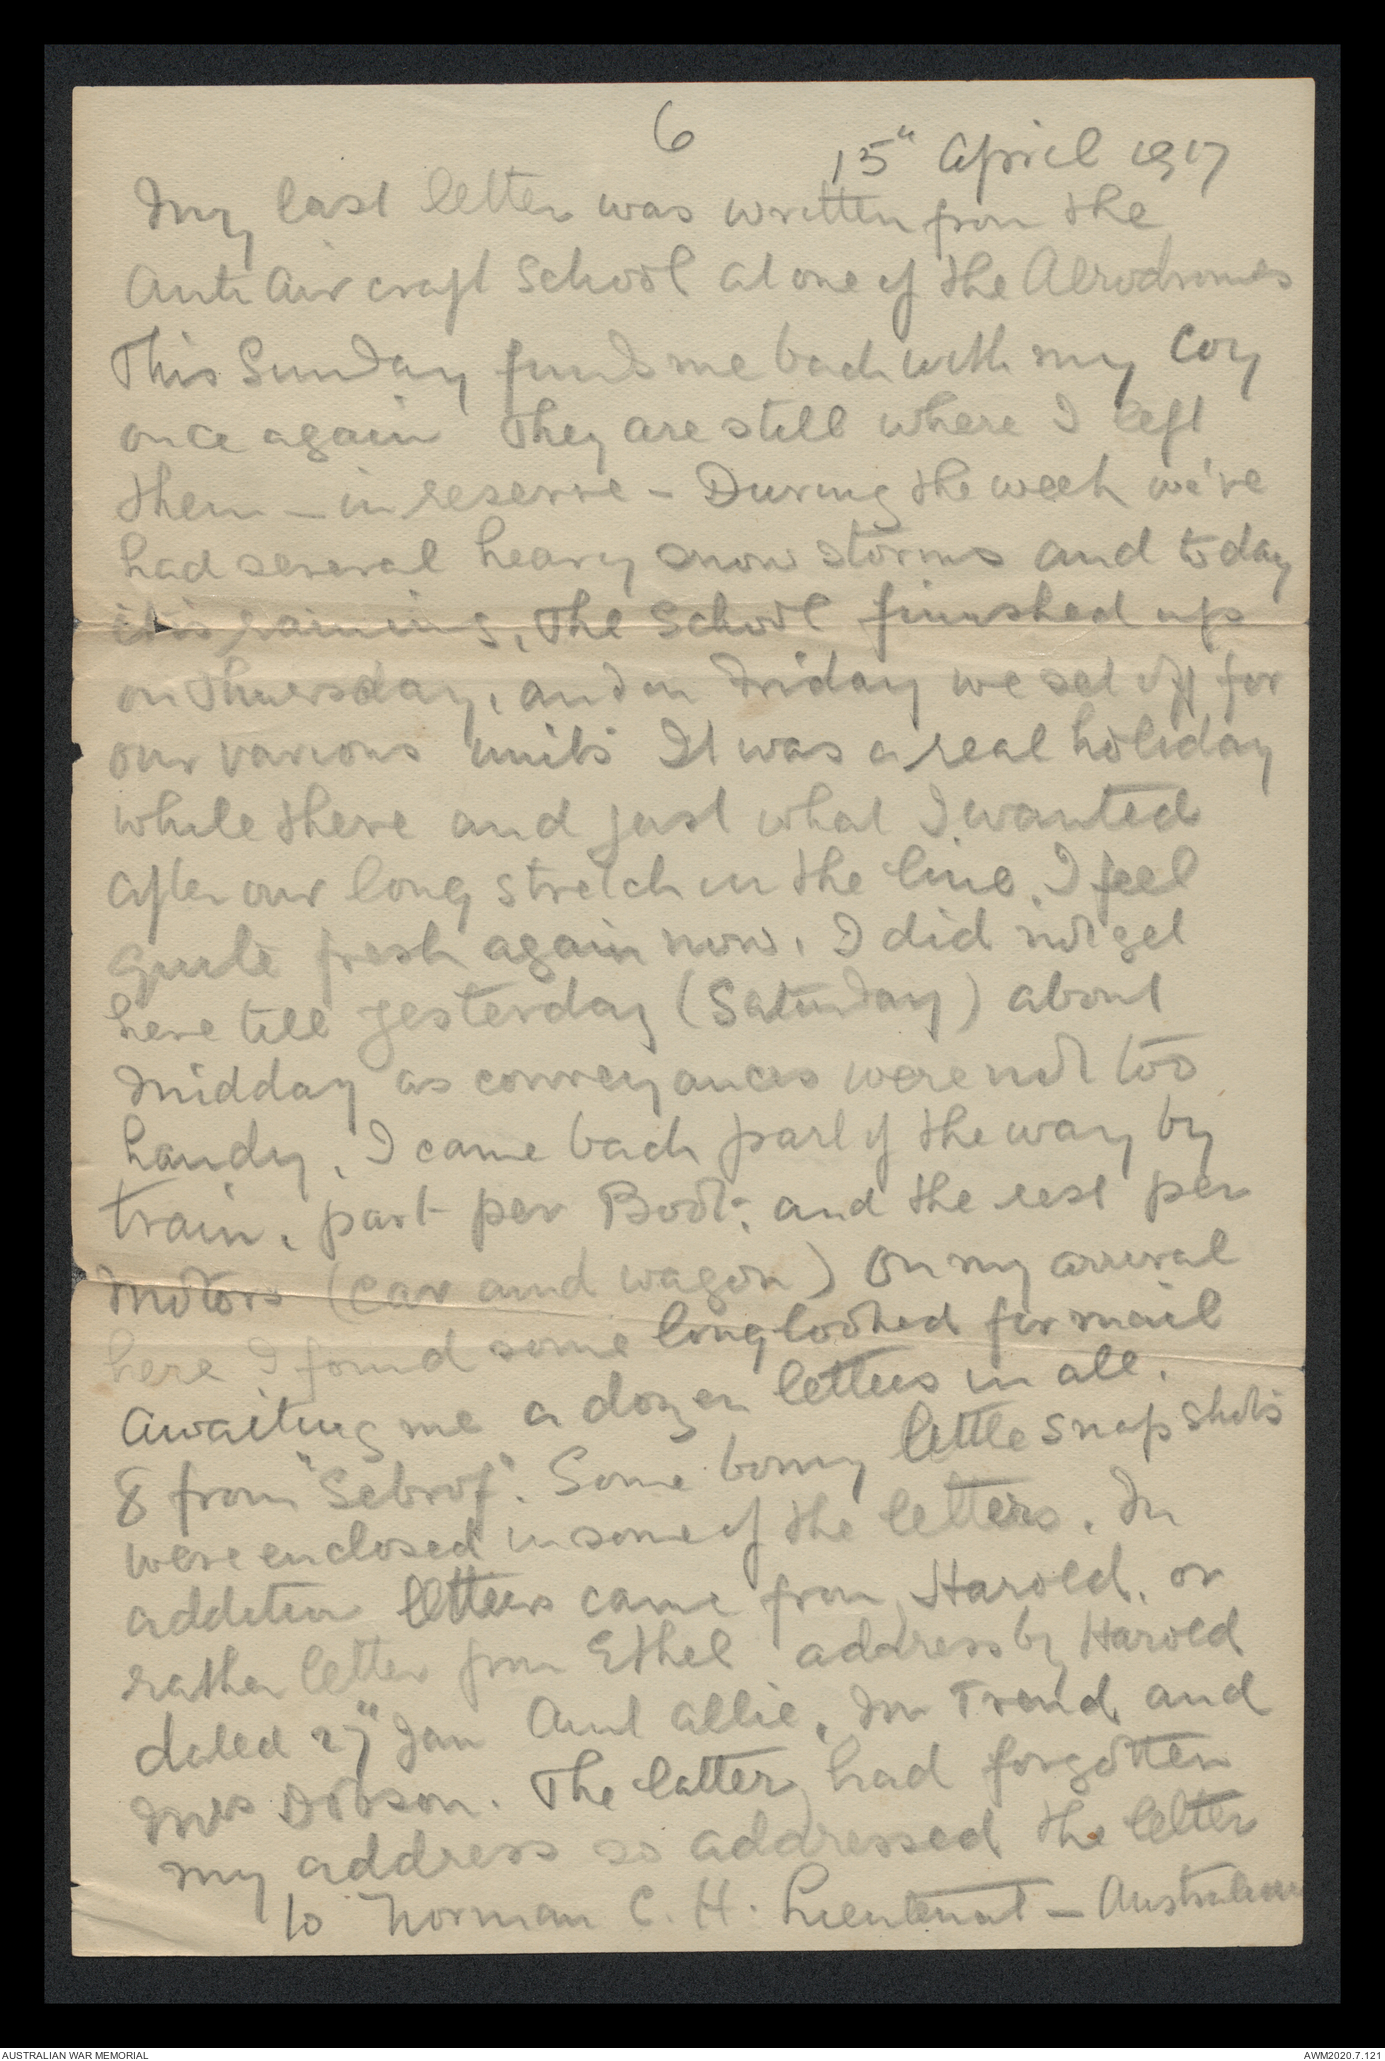 6
15" April 1917
My last letter was written from the
Anti Air craft School at one of the Aerodromes
This Sunday finds me back with my Coy
once again They are still where I left
them - in reserve - During the week we've
had several heavy snow storms and today
it is raining, The School finished up
on Thursday, and on Friday we set off for
our various units It was a real holiday
while there and just what I wanted
after our long stretch in the line. I feel
quite fresh again now. I did not get
here till yesterday (Saturday) about
Midday as conveyances were not too
handy. I came back part of the way by
train, part per Boot; and the rest per
Motors (Car and wagon) On my arrival
here I found some long looked for mail
Awaiting me a dozen letters in all.
8 from "Sebrof". Some bonny little snap shots
were enclosed in some of the letters. In
addition letters came from Harold, or
rather letter from Ethel address by Harold
dated 27" Jan Aunt Allie, Mr Trend and
Mrs Dobson. The latter had forgotten
my address so addressed the letter
to Norman C. H. Lieutenant - Australian
AUSTRALIAN WAR MEMORIAL
AWM2020.7.121